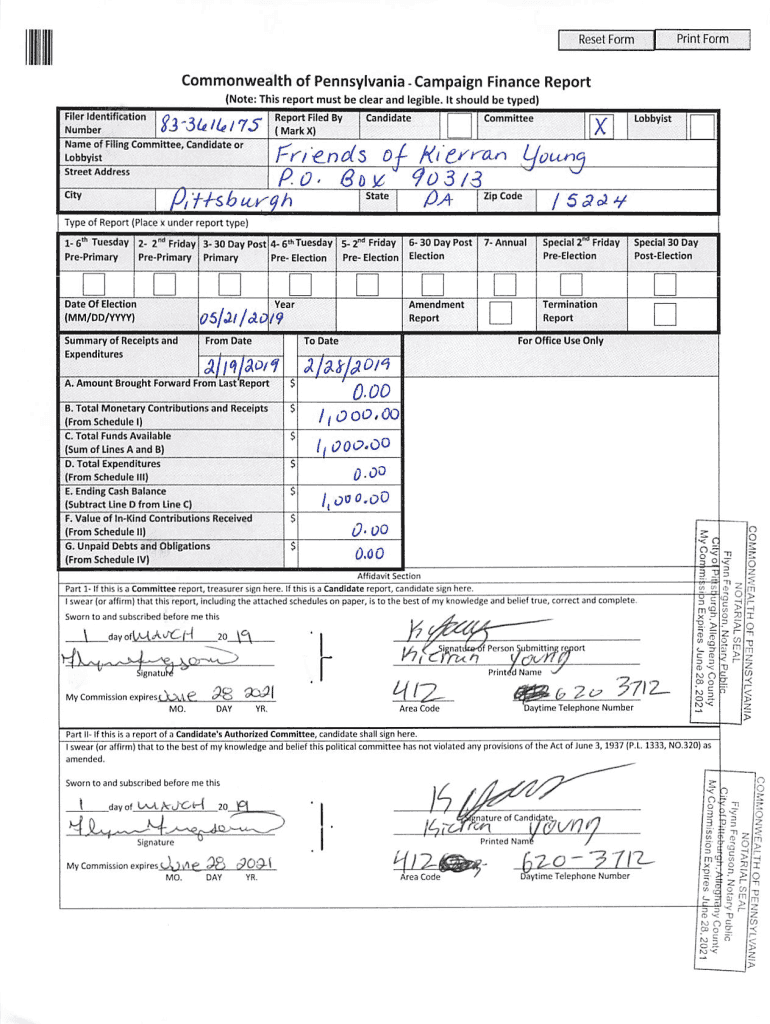 Reset Form Print Form
Commonwealth of Pennsylvania - Campaign Finance Report
(Note: This report must be clear and legible. It should be typed)
Filer Identification Number 83-3616175 Report Filed By ( Mark X) Candidate Committee X Lobbyist
Name of Filing Committee, Candidate or Lobbyist Friends of Kierran Young
Street Address P.O. Box 90313
City Pittsburgh State PA Zip Code 15224
Type of Report (Place x under report type)
1- 6th Tuesday Pre-Primary 2- 2nd Friday Pre-Primary 3- 30 Day Post Primary 4- 6th Tuesday Pre- Election 5- 2nd Friday Pre- Election 6- 30 Day Post Election 7- Annual Special 2nd Friday Pre-Election Special 30 Day Post-Election
Date Of Election (MM/DD/YYYY) 05/21/2019 Year Amendment Report Termination Report
Summary of Receipts and Expenditures From Date 2/19/2019 To Date 2/28/2019 For Office Use Only
A. Amount Brought Forward From Last Report $ 0.00
B. Total Monetary Contributions and Receipts (From Schedule I) $ 1,000.00
C. Total Funds Available (Sum of Lines A and B) $ 1,000.00
D. Total Expenditures (From Schedule III) $ 0.00
E. Ending Cash Balance (Subtract Line D from Line C) $ 1,000.00
F. Value of In-Kind Contributions Received (From Schedule II) $ 0.00
G. Unpaid Debts and Obligations (From Schedule IV) $ 0.00
Affidavit Section
Part 1- If this is a Committee report, treasurer sign here. If this is a Candidate report, candidate sign here.
I swear (or affirm) that this report, including the attached schedules on paper, is to the best of my knowledge and belief true, correct and complete.
Sworn to and subscribed before me this
1 day of March 20 19
Signature Signature of Person Submitting report
Kierran Young
Printed Name
My Commission expires June 28 2021 412 620 3712
MO. DAY YR. Area Code Daytime Telephone Number
Part II- If this is a report of a Candidate's Authorized Committee, candidate shall sign here.
I swear (or affirm) that to the best of my knowledge and belief this political committee has not violated any provisions of the Act of June 3, 1937 (P.L. 1333, NO.320) as
amended.
Sworn to and subscribed before me this
1 day of March 20 19
Signature Signature of Candidate
Kierran Young
Printed Name
My Commission expires June 28 2021 412 620-3712
MO. DAY YR. Area Code Daytime Telephone Number
COMMONWEALTH OF PENNSYLVANIA
NOTARIAL SEAL
Flynn Ferguson, Notary Public
City of Pittsburgh, Allegheny County
My Commission Expires June 28, 2021
COMMONWEALTH OF PENNSYLVANIA
NOTARIAL SEAL
Flynn Ferguson, Notary Public
City of Pittsburgh, Allegheny County
My Commission Expires June 28, 2021